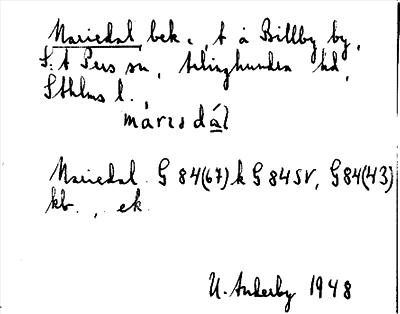 Mariedal bek., t å Billby by,
S:t Pers sn, Seminghundra hd,
Sthlms l.
màrɩsdál
Mariedal G 84(67) k G 84SV, G84(43)
kb., ek.
U. Anderby 1948